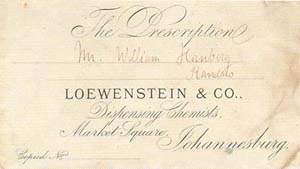 The Prescription
Mr. William Hanbury
LOEWENSTEIN & CO.,
Dispensing Chemists,
Market Square, Johannesburg.
Copied No